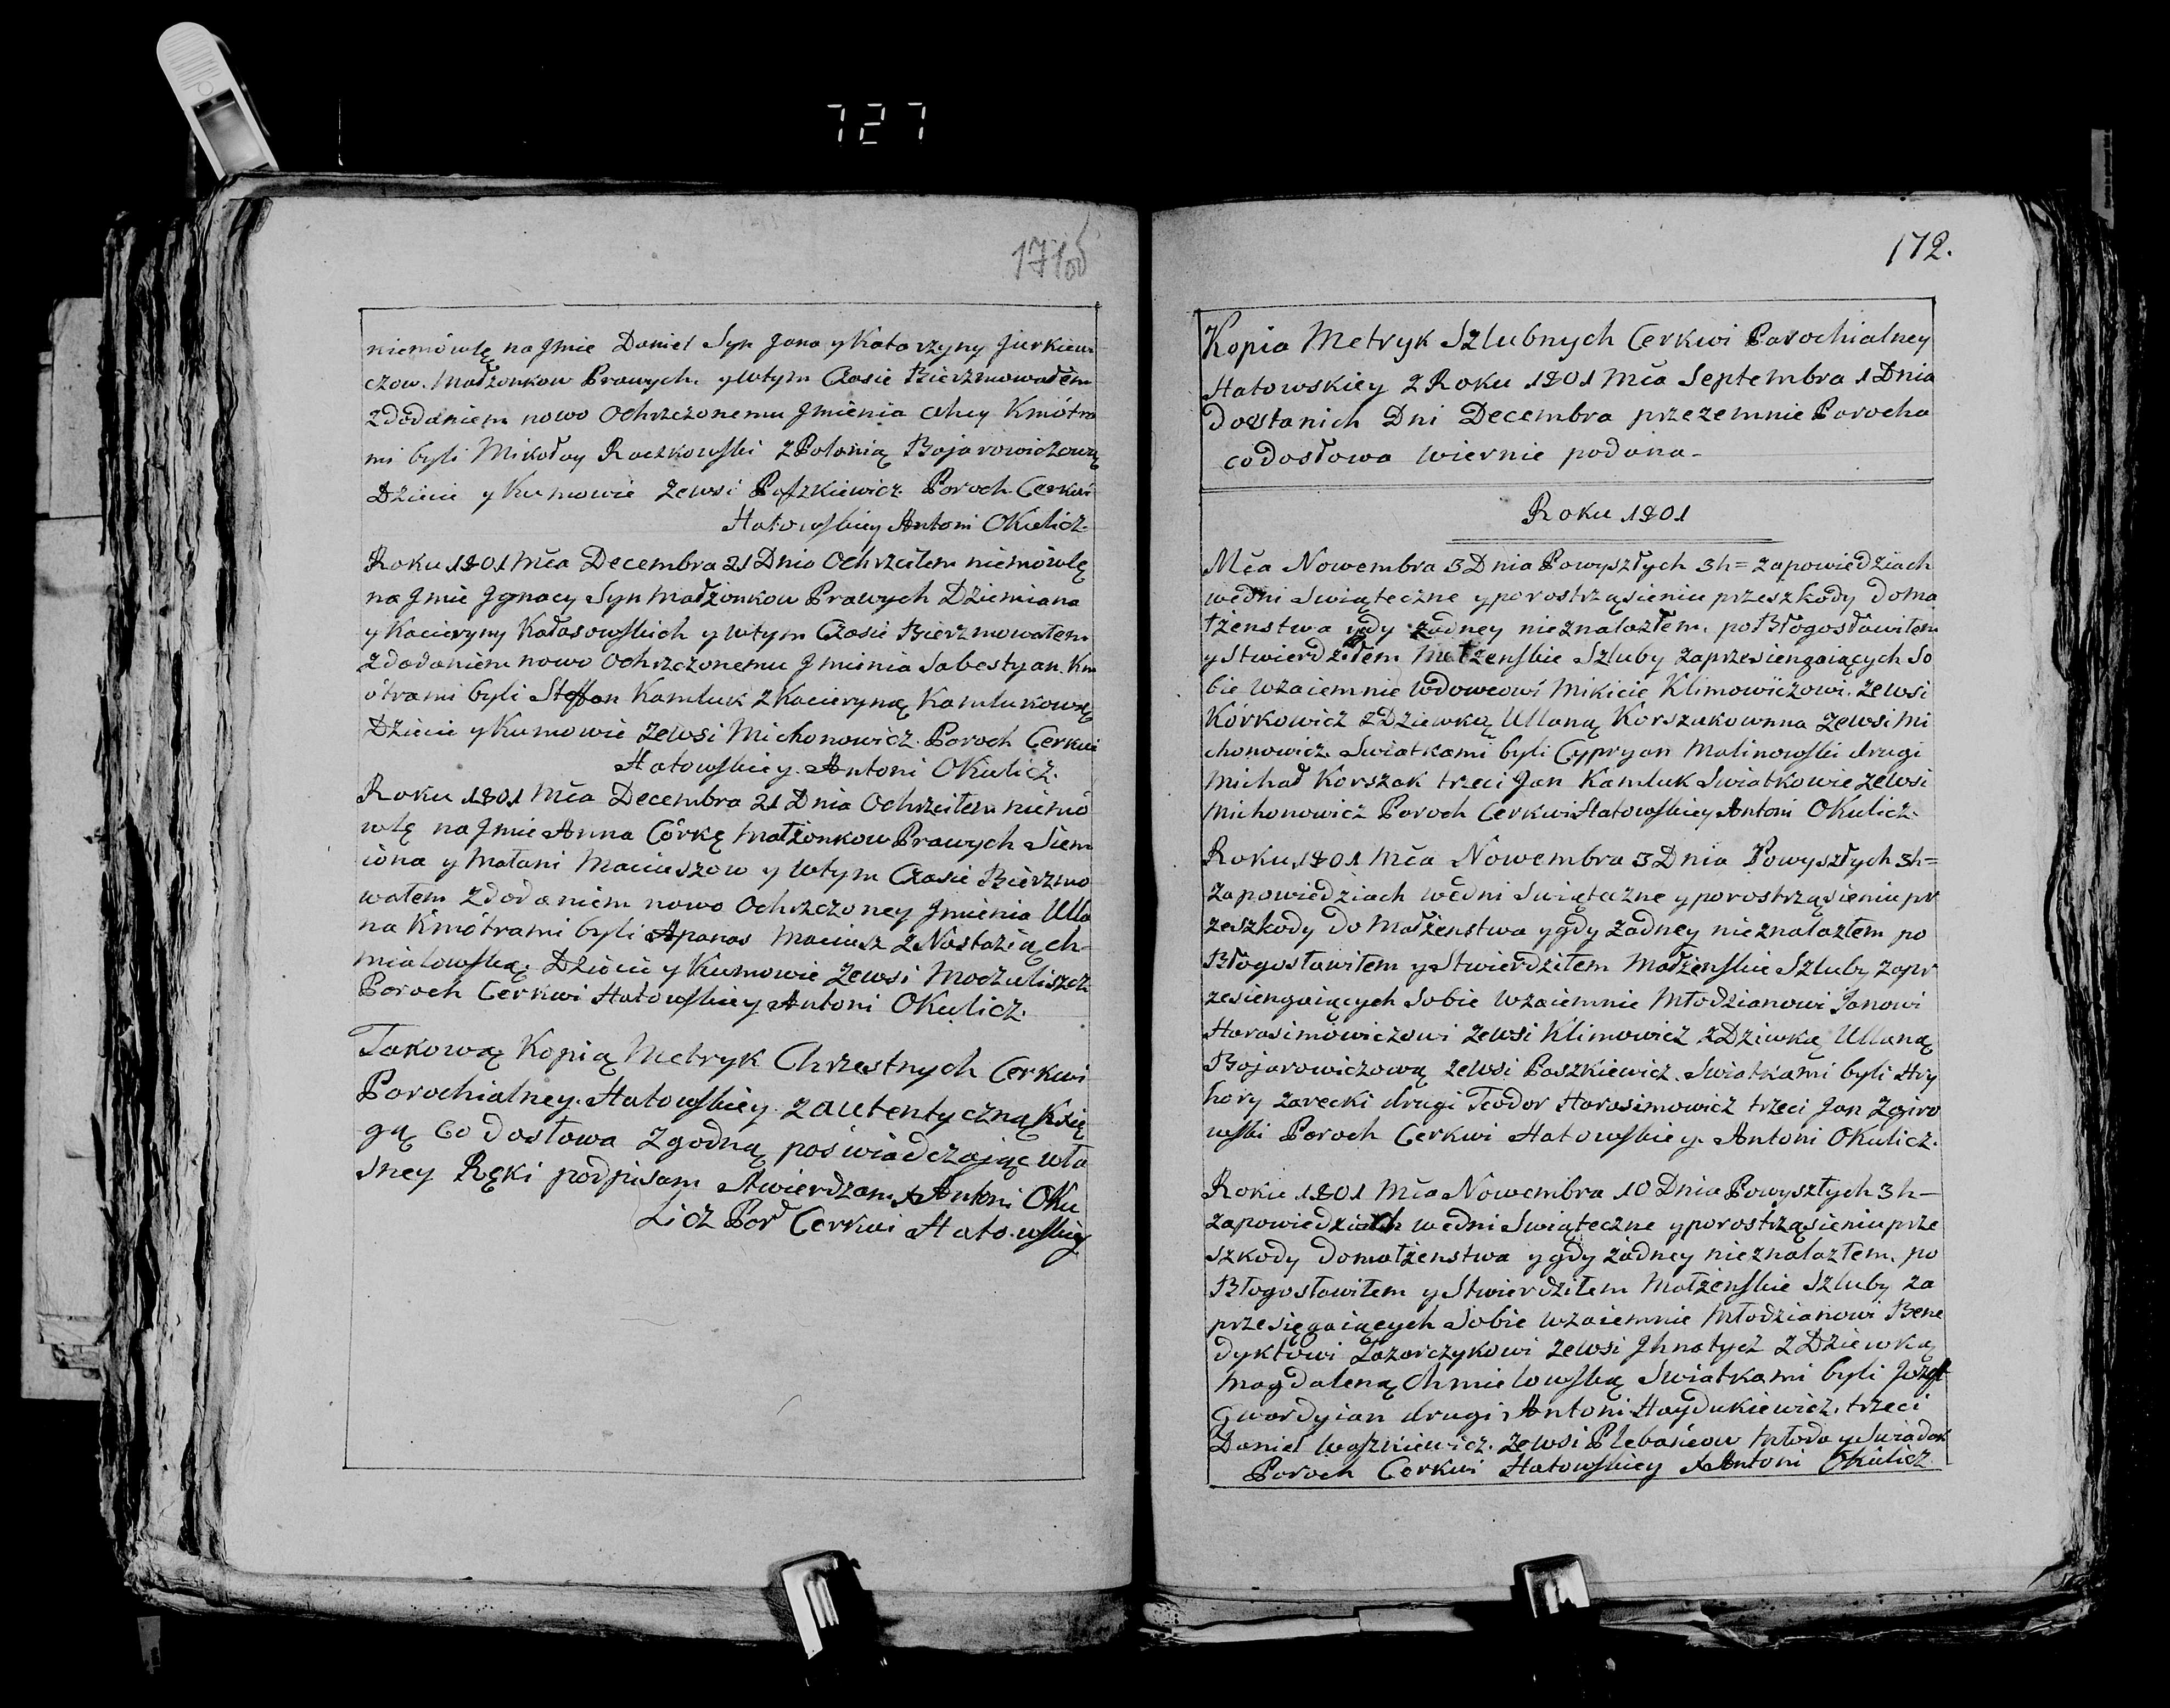 727
171об
niemówlę na Jmie Daniel Syn Jana y Katarzyny Jurkiewi
czow. Małżonkow Prawych. y wtym Czasie Bierzmowałem
z dodaniem nowo Ochrzczonemu Jmienia Kmótra
mi byli Mikołay Raczkowski z Polonią Bojarowiczową
Dziecie y Kumowie zewsi Paszkiewicz. Paroch Cerkwi
Hatowskiey Antoni Okulicz.
Roku 1801 Mča Decembra 21 Dnia Ochrzciłem niemówlę
na Jmie Jgnacy Syn Małżonkow Prawych Dziemiana
y Kacieryny Kałasowskich y wtym Czasie Bierzmowałem
z dodaniem nowo Ochrzczonemu Jmienia Sabestyan. Km
ótrami byli Steffan Kamluk z Kacieryną Kamlukową
Dziecie y Kumowie zewsi Michonowicz. Paroch Cerkwi
Hatowskiey Antoni Okulicz.
Roku 1801 Mča Decembra 21 Dnia Ochrzciłem niemó
wlę na Jmie Anna Córkę Małżonkow Prawych Siem
iona y Małani Macieszow y wtym Czasie Bierzmo
wałem z dodaniem nowo Ochrzczoney Jmienia Ulla
na Kmótrami byli Apanas Maciesz z Nastazią Ch
mialowską. Dziecie y Kumowie zewsi Moduliszcz
Paroch Cerkwi Hatowskiey Antoni Okulicz.
Takową Kopią Metryk Chrzestnych Cerkwi
Parochialney Hatowskiey z autentyczną Księ
gą Co dosłowa Zgodną poświadczając wła
sney Ręki podpisam stwierdzam X Antoni Oku
Licz Par Cerkwi Hatowskiey
172.
Kopia Metryk Szlubnych Cerkwi Parochialney
Hatowskiey z Roku 1801 Mča Septembra 1 Dnia
do ostanich Dni Decembra przezemnie Parocha
co dosłowa wiernie podana-
Roku 1801
Mča Nowembra 3 Dnia Powyszłych 3h= zapowiedziach
wedni Swiąteczne y porostrząsieniu przeszkody doma
łzenstwa ygdy żadney nieznalazłem. poBłogosławiłem
y Stwierdziłem Małżenskie Szluby zaprzesiengaiących So
bie wzaiemnie Wdowcowi Mikicie Klimowiczowi. zewsi
Kórkowicz z Dziewką Ullaną Korszukownna zewsi Mi
chonowicz. Swiatkami byli Cypryan Malinowski drugi
Michał Korszak trzeci Jan Kamluk Swiatkowie zewsi
Michonowicz Paroch Cerkwi Hatowskiey Antoni Okulicz.
Roku 1801 Mča Nowembra 3 Dnia Powyszłych 3h=
zapowiedziach wedni Swięteczne y porostrząsieniu pr
zeszkody do Małżenstwa ygdy żadney nieznalazłem po
Błogosławiłem y Stwierdziłem Małżenskie Szluby zapr
zesiengaiących Sobie wzaiemnie Młodzianowi Janowi
Harasimówiczowi zewsi Klimowicz z Dziewką Ullaną
Bojarowiczową zewsi Paszkiewicz. Swiatkami byli Hry
hory Zarecki drugi Teodor Harasimowicz trzeci Jan Zgiro
wski Paroch Cerkwi Hatowskiey Antoni Okulicz.
Roku 1801 Mča Nowembra 10 Dnia Powyszłych 3h-
zapowiedziach wedni Swiąteczne y porostrząsieniu prze
szkody domałżenstwa ygdy żadney nieznalazłem. po
Błogosławiłem y Stwierdziłem Małżenskie Szluby za
przesięgaiących Sobie wzaiemnie Młodzianowi Bene
dyktowi Łazarczykowi zewsi Jhnatycz z Dziewką
Magdaleną Chmielowską Swiatkami byli Józef
Gwardyian drugi Antoni Haydukiewicz. trzeci
Daniel Waszkiewicz. zewsi Plebańcow Młoda y Swiadek
Paroch Cerkwi Hatowskiey X Antoni Okulicz.